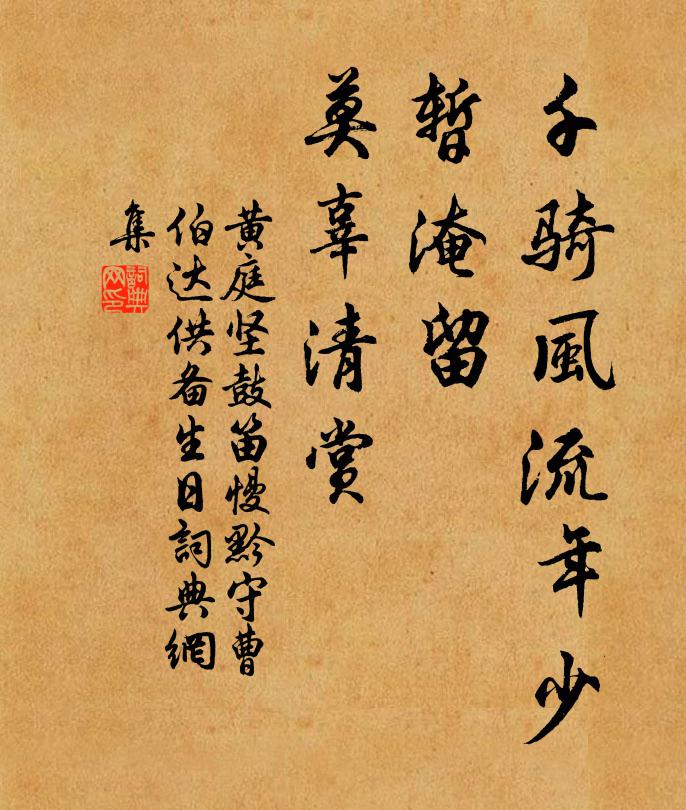 千騎風流年少
暫淹留
莫辜清賞
黄庭坚鼓笛慢黔守曹
伯达供备生日詞典網
集
詞典網印